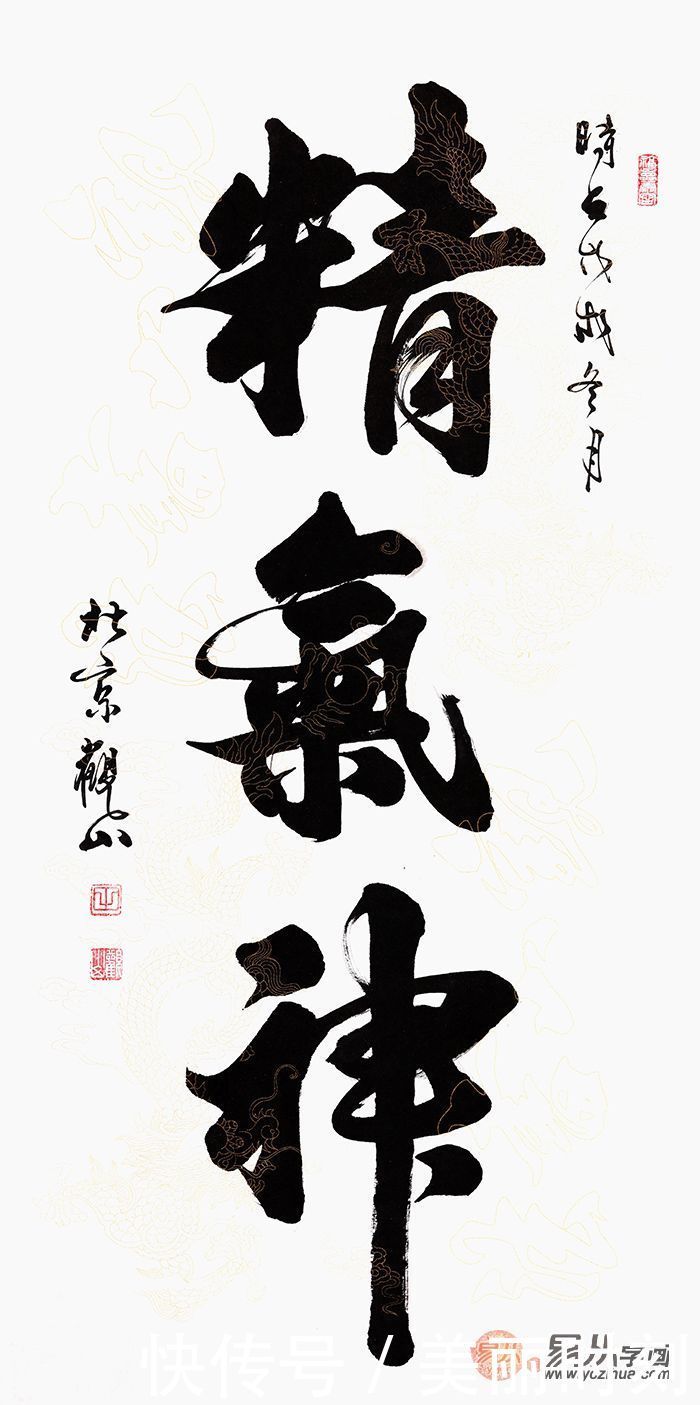 時在戊戌冬月
精氣神
於京觀山
快传号 / 美丽时刻
易从字画
www.yczihua.com